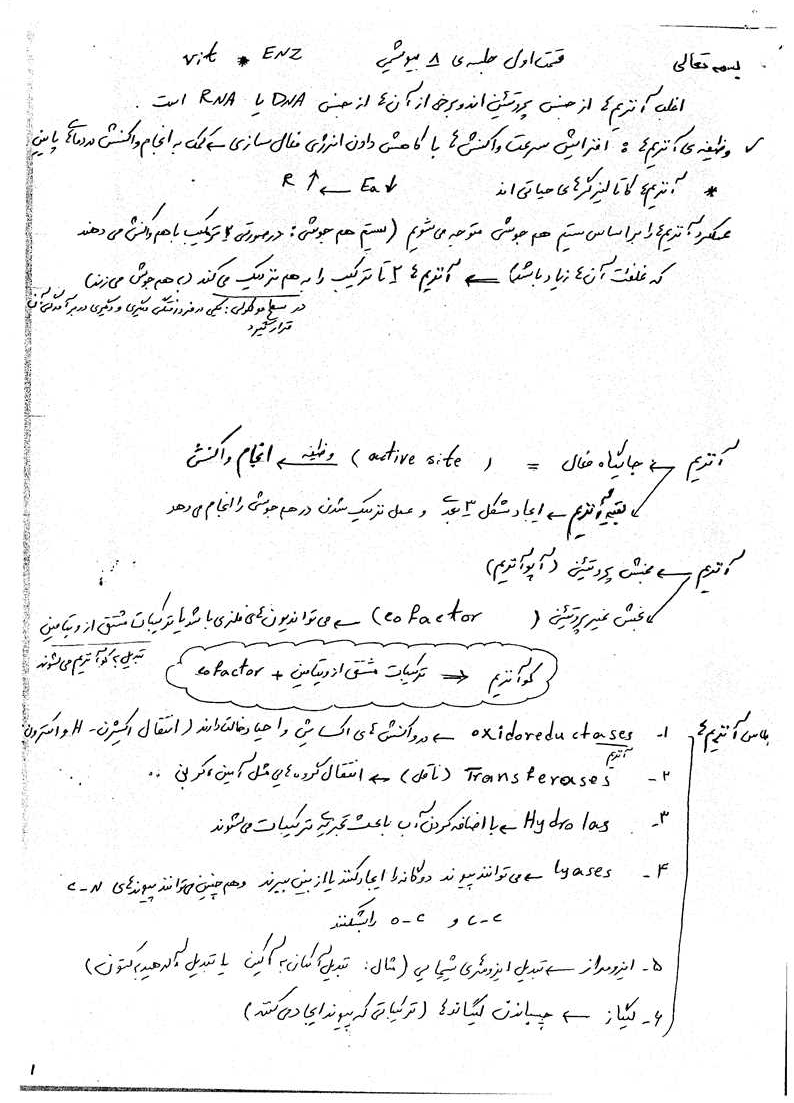 بسمه تعالی
قسمت اول جلسه ی ۸ بیوشیمی vit * ENZ
اغلب آنزیم ها از جنس پروتئین اند و برخی از آن ها از جنس DNA یا RNA است.
✓ وظیفه ی آنزیم ها: افزایش سرعت واکنش ها با کاهش دادن انرژی فعال سازی ← کمک به انجام واکنش در دماهای پایین
* آنزیم ها کاتالیزگرهای حیاتی اند R ↑ ← Ea ↓
عملکرد آنزیم ها را بر اساس سیستم هم جوشی متوجه می شویم (سیستم هم جوشی: در صورتی ۲ ترکیب با هم واکنش می دهند
که غلظت آن ها زیاد باشد) ← آنزیم ها ۲ تا ترکیب را به هم نزدیک می کند (به هم جوش می زند)
در سطح مولکولی: یکی در فرورفتگی دیگری و دیگری در برآمدگی آن
قرار گیرد
آنزیم ← جایگاه فعال = (active site) وظیفه ← انجام واکنش
بقیه آنزیم ← ایجاد شکل ۳ بعدی و عمل نزدیک شدن در هم جوشی را انجام می دهد
آنزیم ← بخش پروتئینی (آپوآنزیم)
بخش غیر پروتئینی (cofactor) ← می تواند یون های فلزی باشد یا ترکیبات مشتق از ویتامین
تبدیل به کوآنزیم می شوند
کوآنزیم ⇐ ترکیبات مشتق از ویتامین + cofactor
کلاس آنزیم ها ۱- oxidoreductases ← در واکنش های اکسایش و احیا دخالت دارند (انتقال اکسیژن - H و الکترون
آنزیم
۲- Transferases (ناقل) ← انتقال گروه هایی مثل آمین و کربنی ..
۳- Hydrolas ← با اضافه کردن آب باعث تجزیه ترکیبات می شوند
۴- lyases ← می توانند پیوند دوگانه را ایجاد کنند یا از بین ببرند و هم چنین می توانند پیوندهای C-N
C-C و O-C را بشکنند
۵- ایزومراز ← تبدیل ایزومرهای شیمیایی (مثال: تبدیل آلکان به آلکین یا تبدیل آلدهید به کتون)
۶- لیگاز ← چسباندن لیگاندها (ترکیباتی که پیوند ایجاد می کنند)
۱